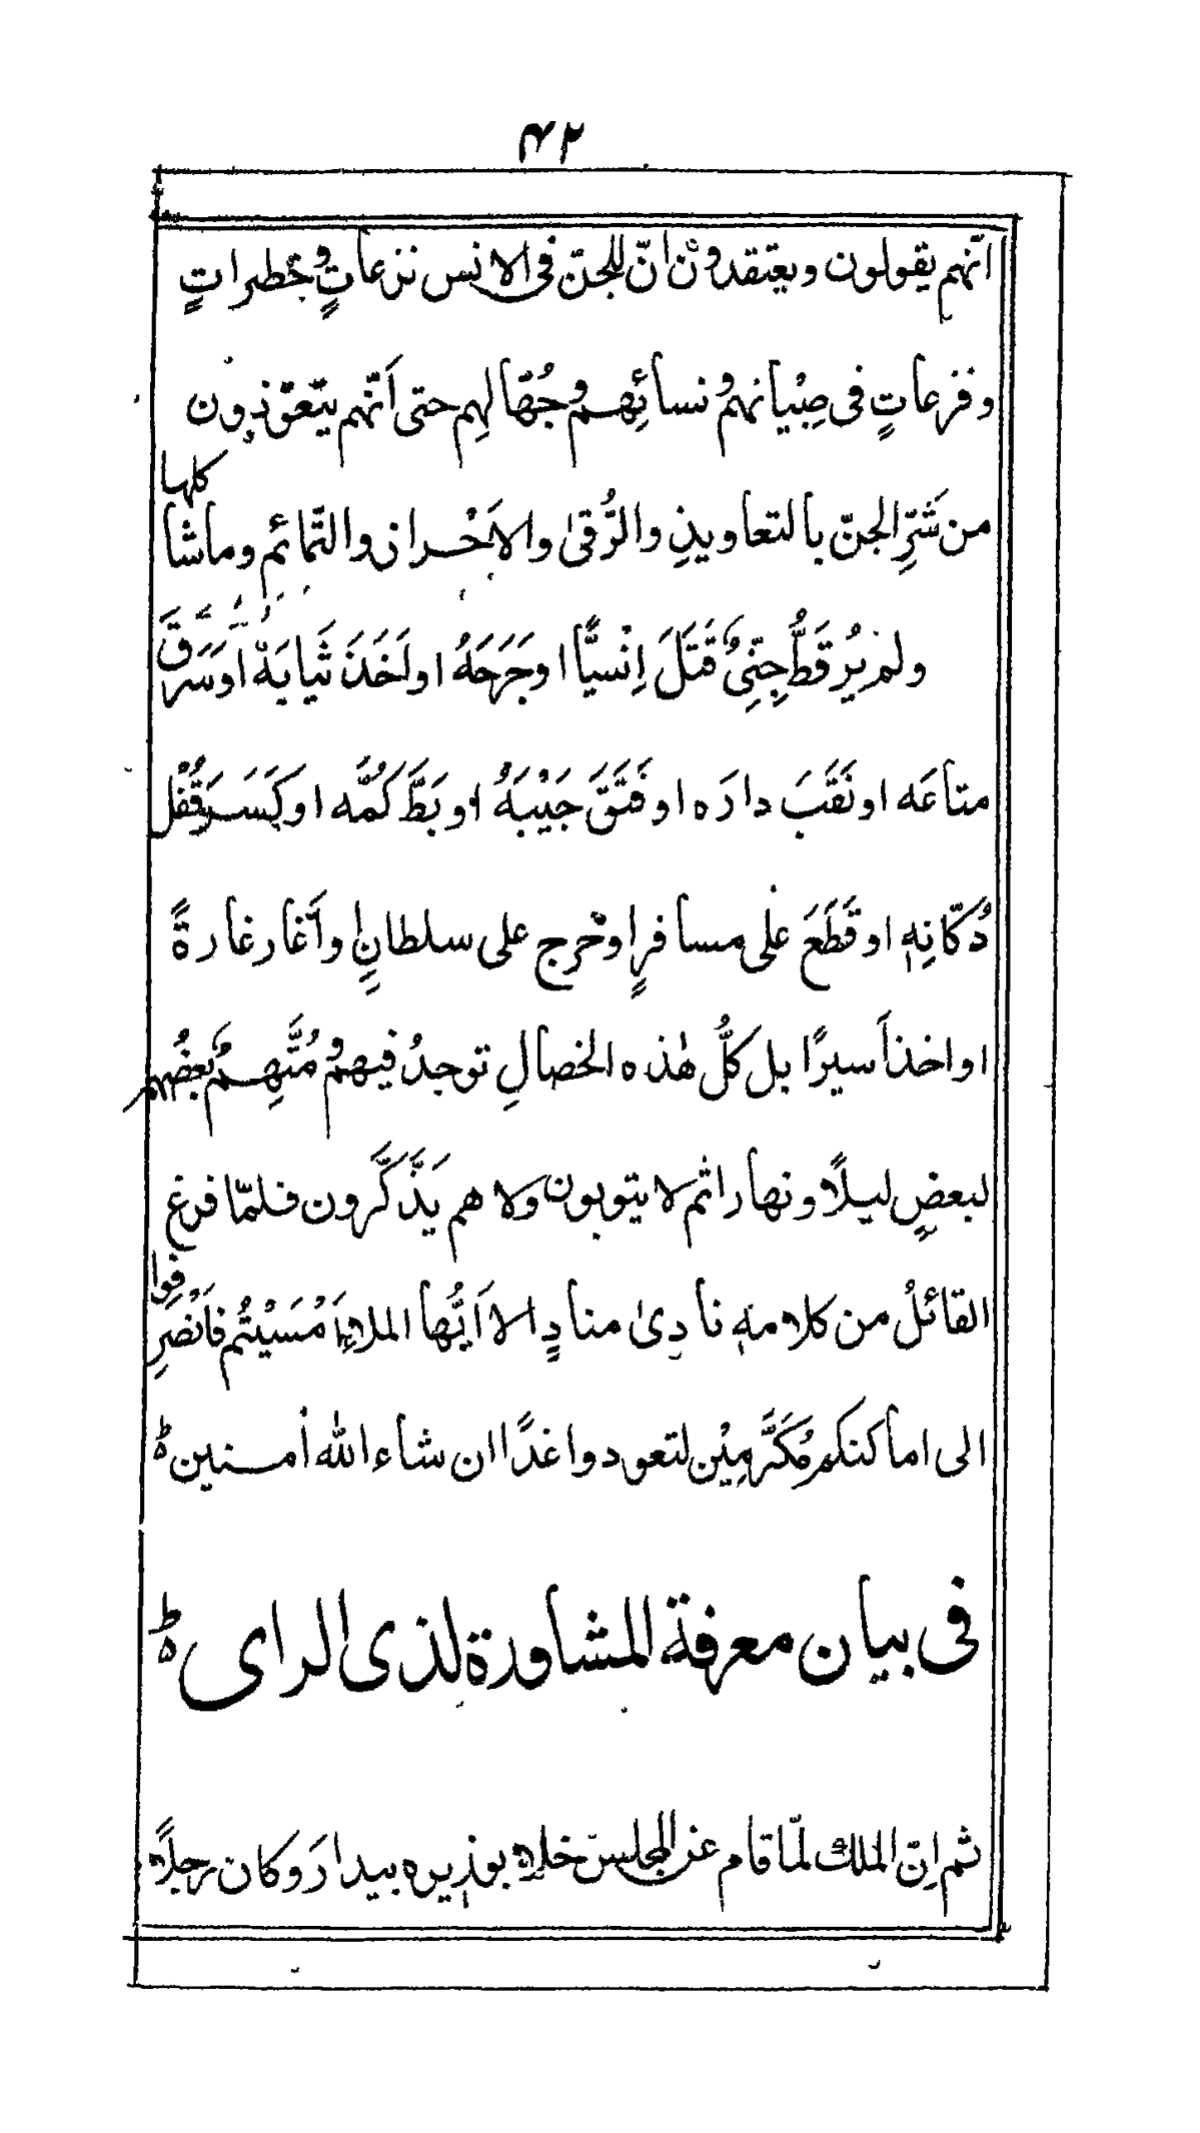 ۴۲
انّهم يقولون ويعتقدون انّ للجنّ فى الانس نزعاتٍ وخطراتٍ
وفزعاتٍ فى صِبْيانهم ونسائِهم وجُهّالهِم حتى اَنّهم يتعوّذون
من شَرِّ الجنّ بالتعاويذِ والرُّقىٰ والاَحْراز والتّمائم وماشا كلها
ولم يُر قَطُّ جِنِّىٌ قَتَلَ اِنْسيًّا او جَرَحَهُ او اَخَذَ ثَيابَهٗ او سَرَقَ
متاعَه او نَقَبَ دارَه او فَتَقَ جَيْبَهٗ او بَطَّ كُمَّه او كَسَرَ قُفْل
دُكّانِهٖ او قَطَعَ على مسافرٍ او خرج على سلطانٍ او اَغار غارةً
او اخذ اَسيرًا بل كلُّ هٰذه الخصالِ توجدُ فيهم ومُنّهِم بعضُهم
لبعضٍ ليلًا ونهارا ثم لا يتوبون ولا هم يَذَّكَّرون فلمّا فرغ
القائلُ من كلامهٖ نادىٰ منادٍ الا اَيُّها الملاءِ اَمْسَيْتُم فَانْصَرِفوا
الى اماكنكم مُكَرَّمِيْن لتعودوا غدًا ان شاء الله اٰمنين ۃ
فى بيان معرفة المشاورة لذى الراى ۃ
ثم اِنّ الملك لمّا قام عن المجلس خلا بوزيره بيدار وكان رجلًا